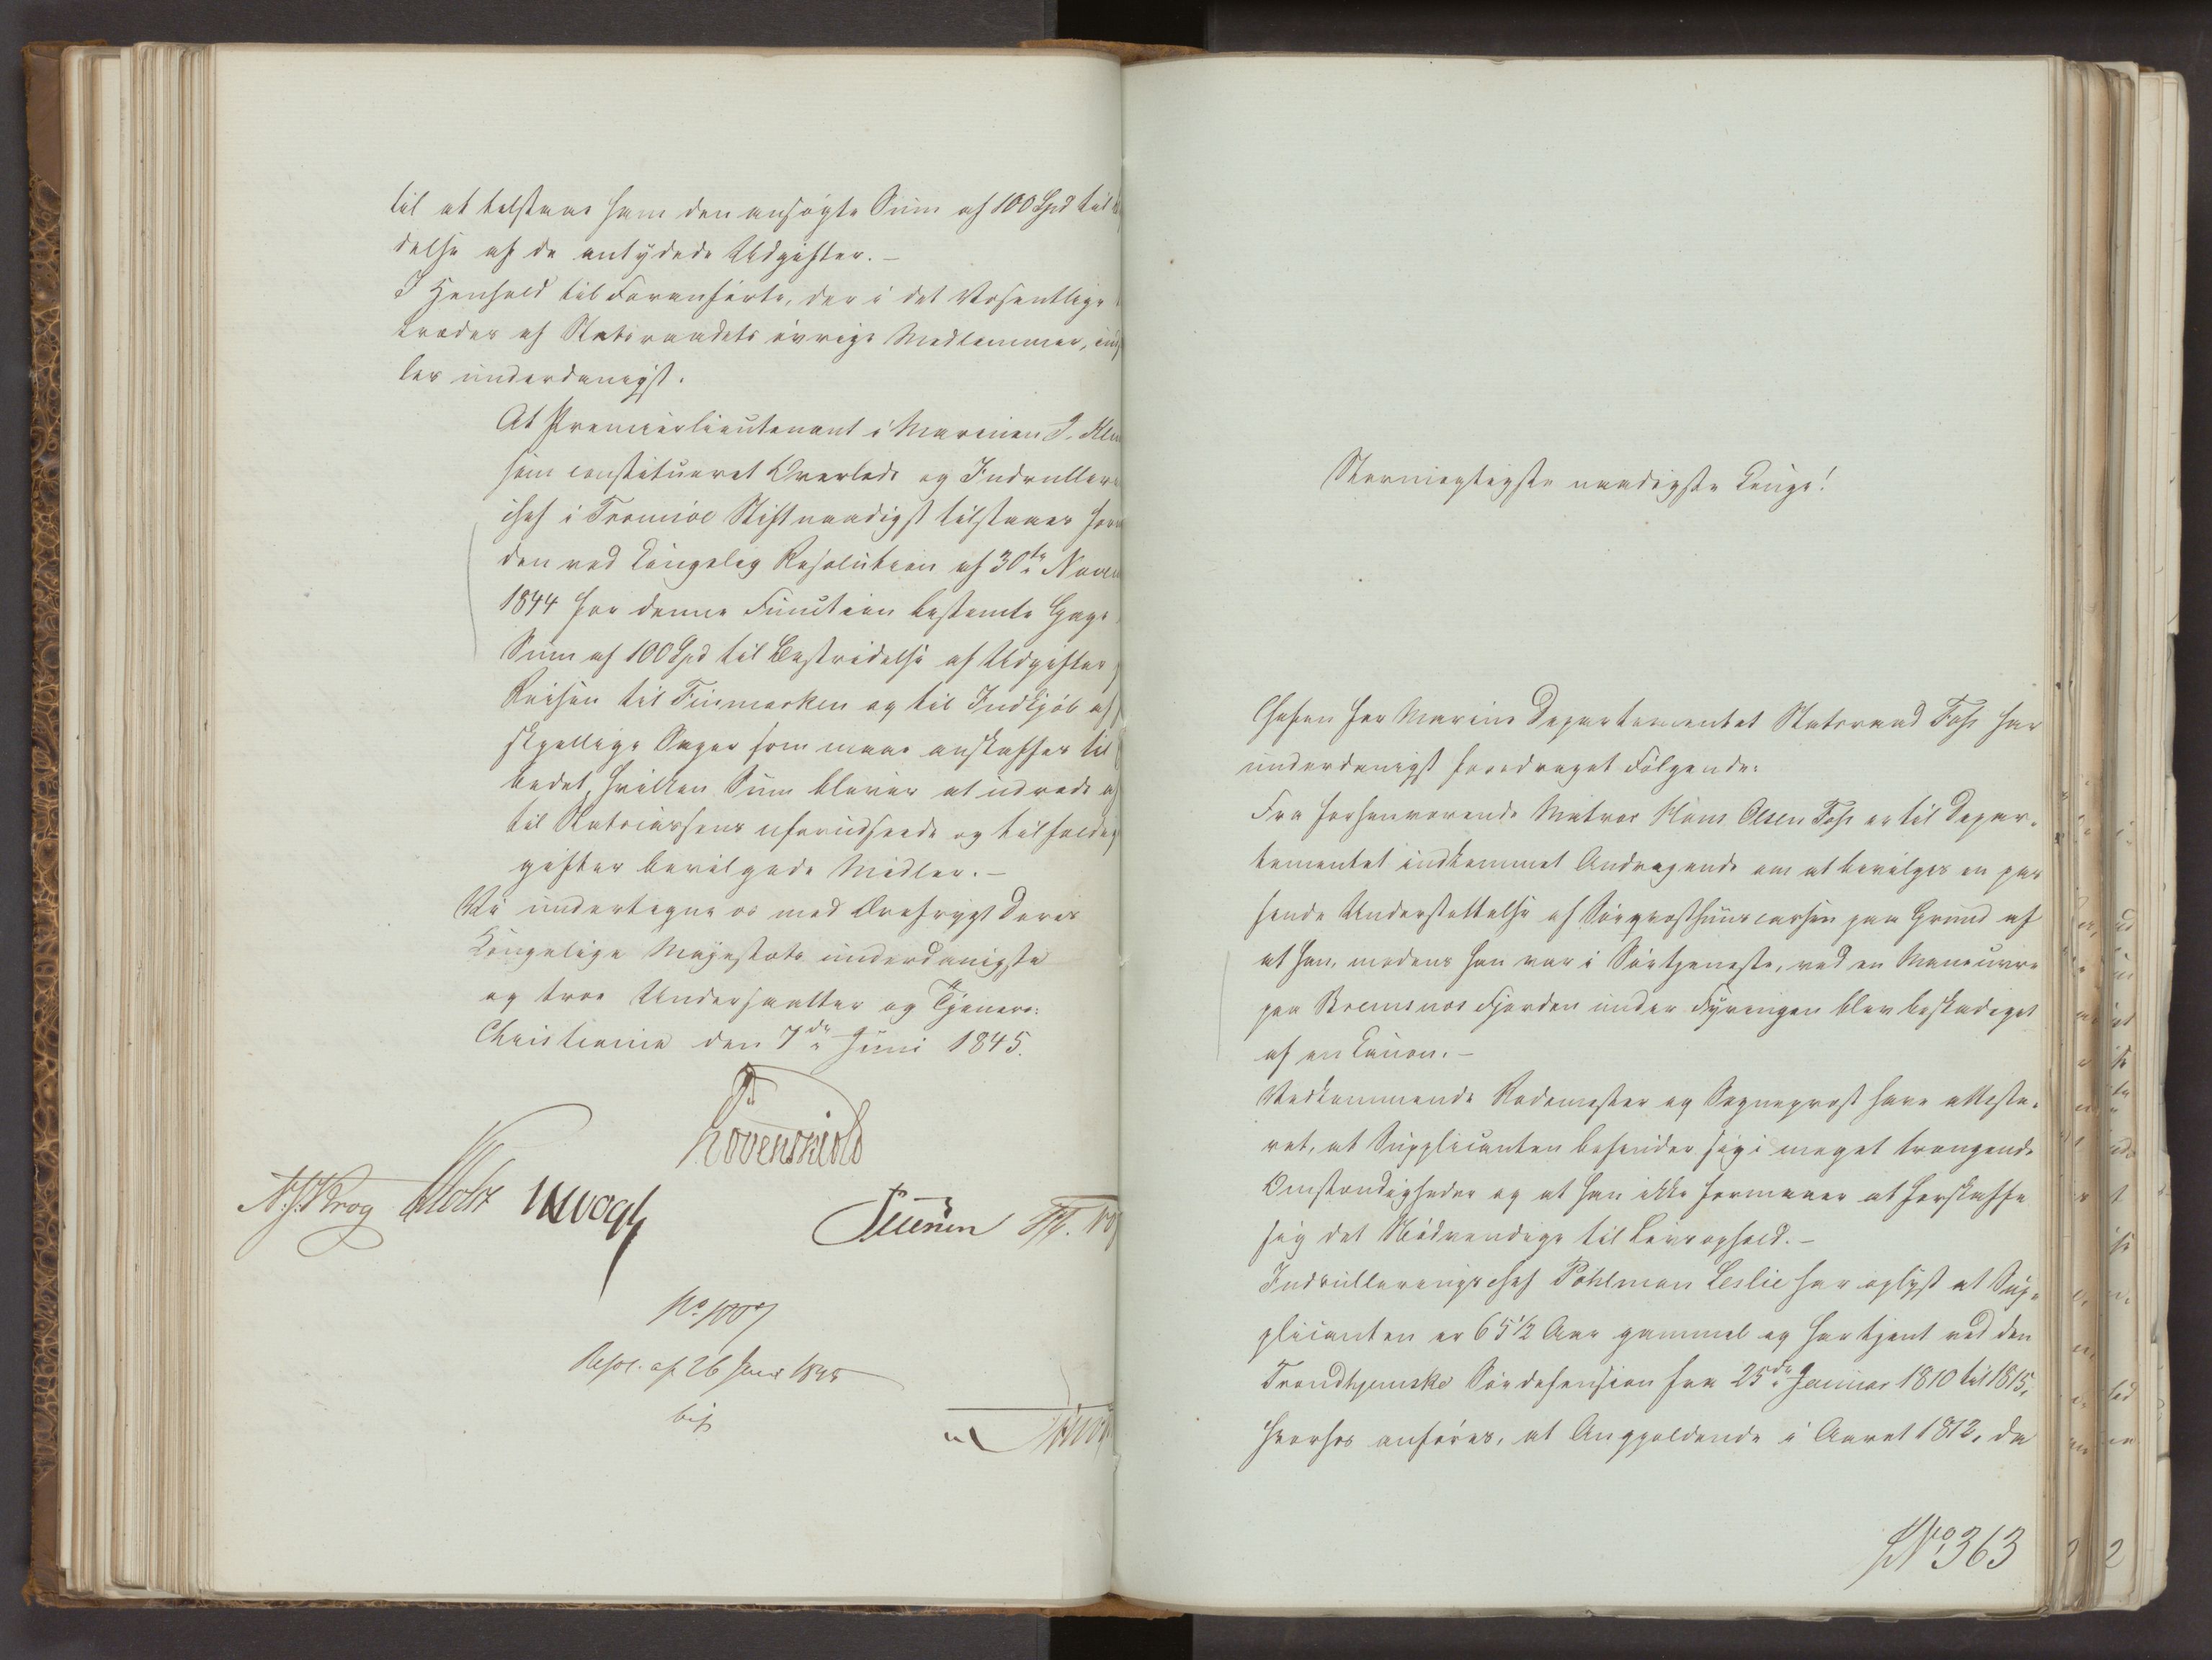 til at tilstaae ham den ansøgte Sum af 100 Spd til
delse af de antydede Udgifter. –
I Henhold til Foranførte, der i det Væsentlige
trædes af Statsraadets øvrige Medlemmer, ind
les underdanigst:
At Premierlieutenant i Marinen J.
som constitueret Overlods og Indrullerings
chef i Tromsøe Stift naadigst tilstaaes foru
den ved Kongelig Resolution af 30te Novem
1844 for denne Function bestemte Gage
Sum af 100 Spd til Bestridelse af Udgifter
Reisen til Finmarken og til Indkjøb af
skjellige Sager som maae anskaffes til
bedet, hvilken Sum bliver at udrede af
til Statscassens uforudseede og tilfældig
gifter bevilgede Midler. –
Vi undertegne os med Ærefrygt Deres
Kongelige Majestæts underdanigste
og troe Undersaatter og Tjenere.
Christiania den 7de Juni 1845.
Løvenskiold
Krog Vogt
No 1007
Resol. af 26 Juni 1845
bif
Stormægtigste naadigste Konge!
Chefen for Marine Departementet Statsraad Fasting har
underdanigst foredraget Følgende:
Fra forhenværende Matros Hans Olsen Foss er til Depar-
tementet indkommet Andragende om at bevilges en pas
sende Understøttelse af Søeqvæsthuuscassen paa Grund af
at han, medens han var i Søetjeneste, ved en Manoeuvre
paa Bremsnæs Fjorden under Fyringen blev beskadiget
af en Canon. –
Vedkommende Rodemester og Sogneprest have atteste-
ret, at Supplicanten befinder sig i meget trængende
Omstændigheder og at han ikke formaaer at forskaffe
sig det Nødvendige til Livsophold. –
Indrulleringschef Pohlman Leslie har oplyst at Sup-
plicanten er 65 1/2 Aar gammel og har tjent ved den
Trondhjemske Søedefension fra 25de Januar 1810 til 1815,
hvorhos anføres, at Angjældende i Aaret 1812, da
No 363